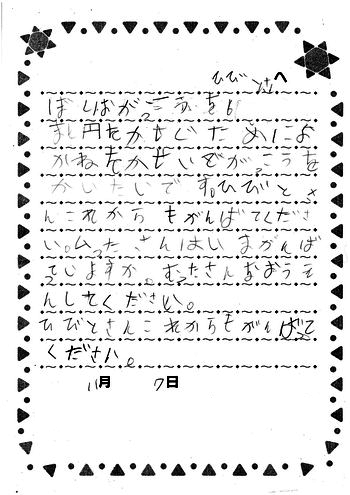 ひびとさんへ
ぼくはがっこうをも
円をかせぐためによ
かねをかせいでがっこうを
かいたいです。ひびとさ
んこれからもがんばてくださ
い。ムッタさんはいまがんば
っていますか。むったさんをおうえ
んしてください。
ひびとさんこれからもがんばって
ください。
11月 7日